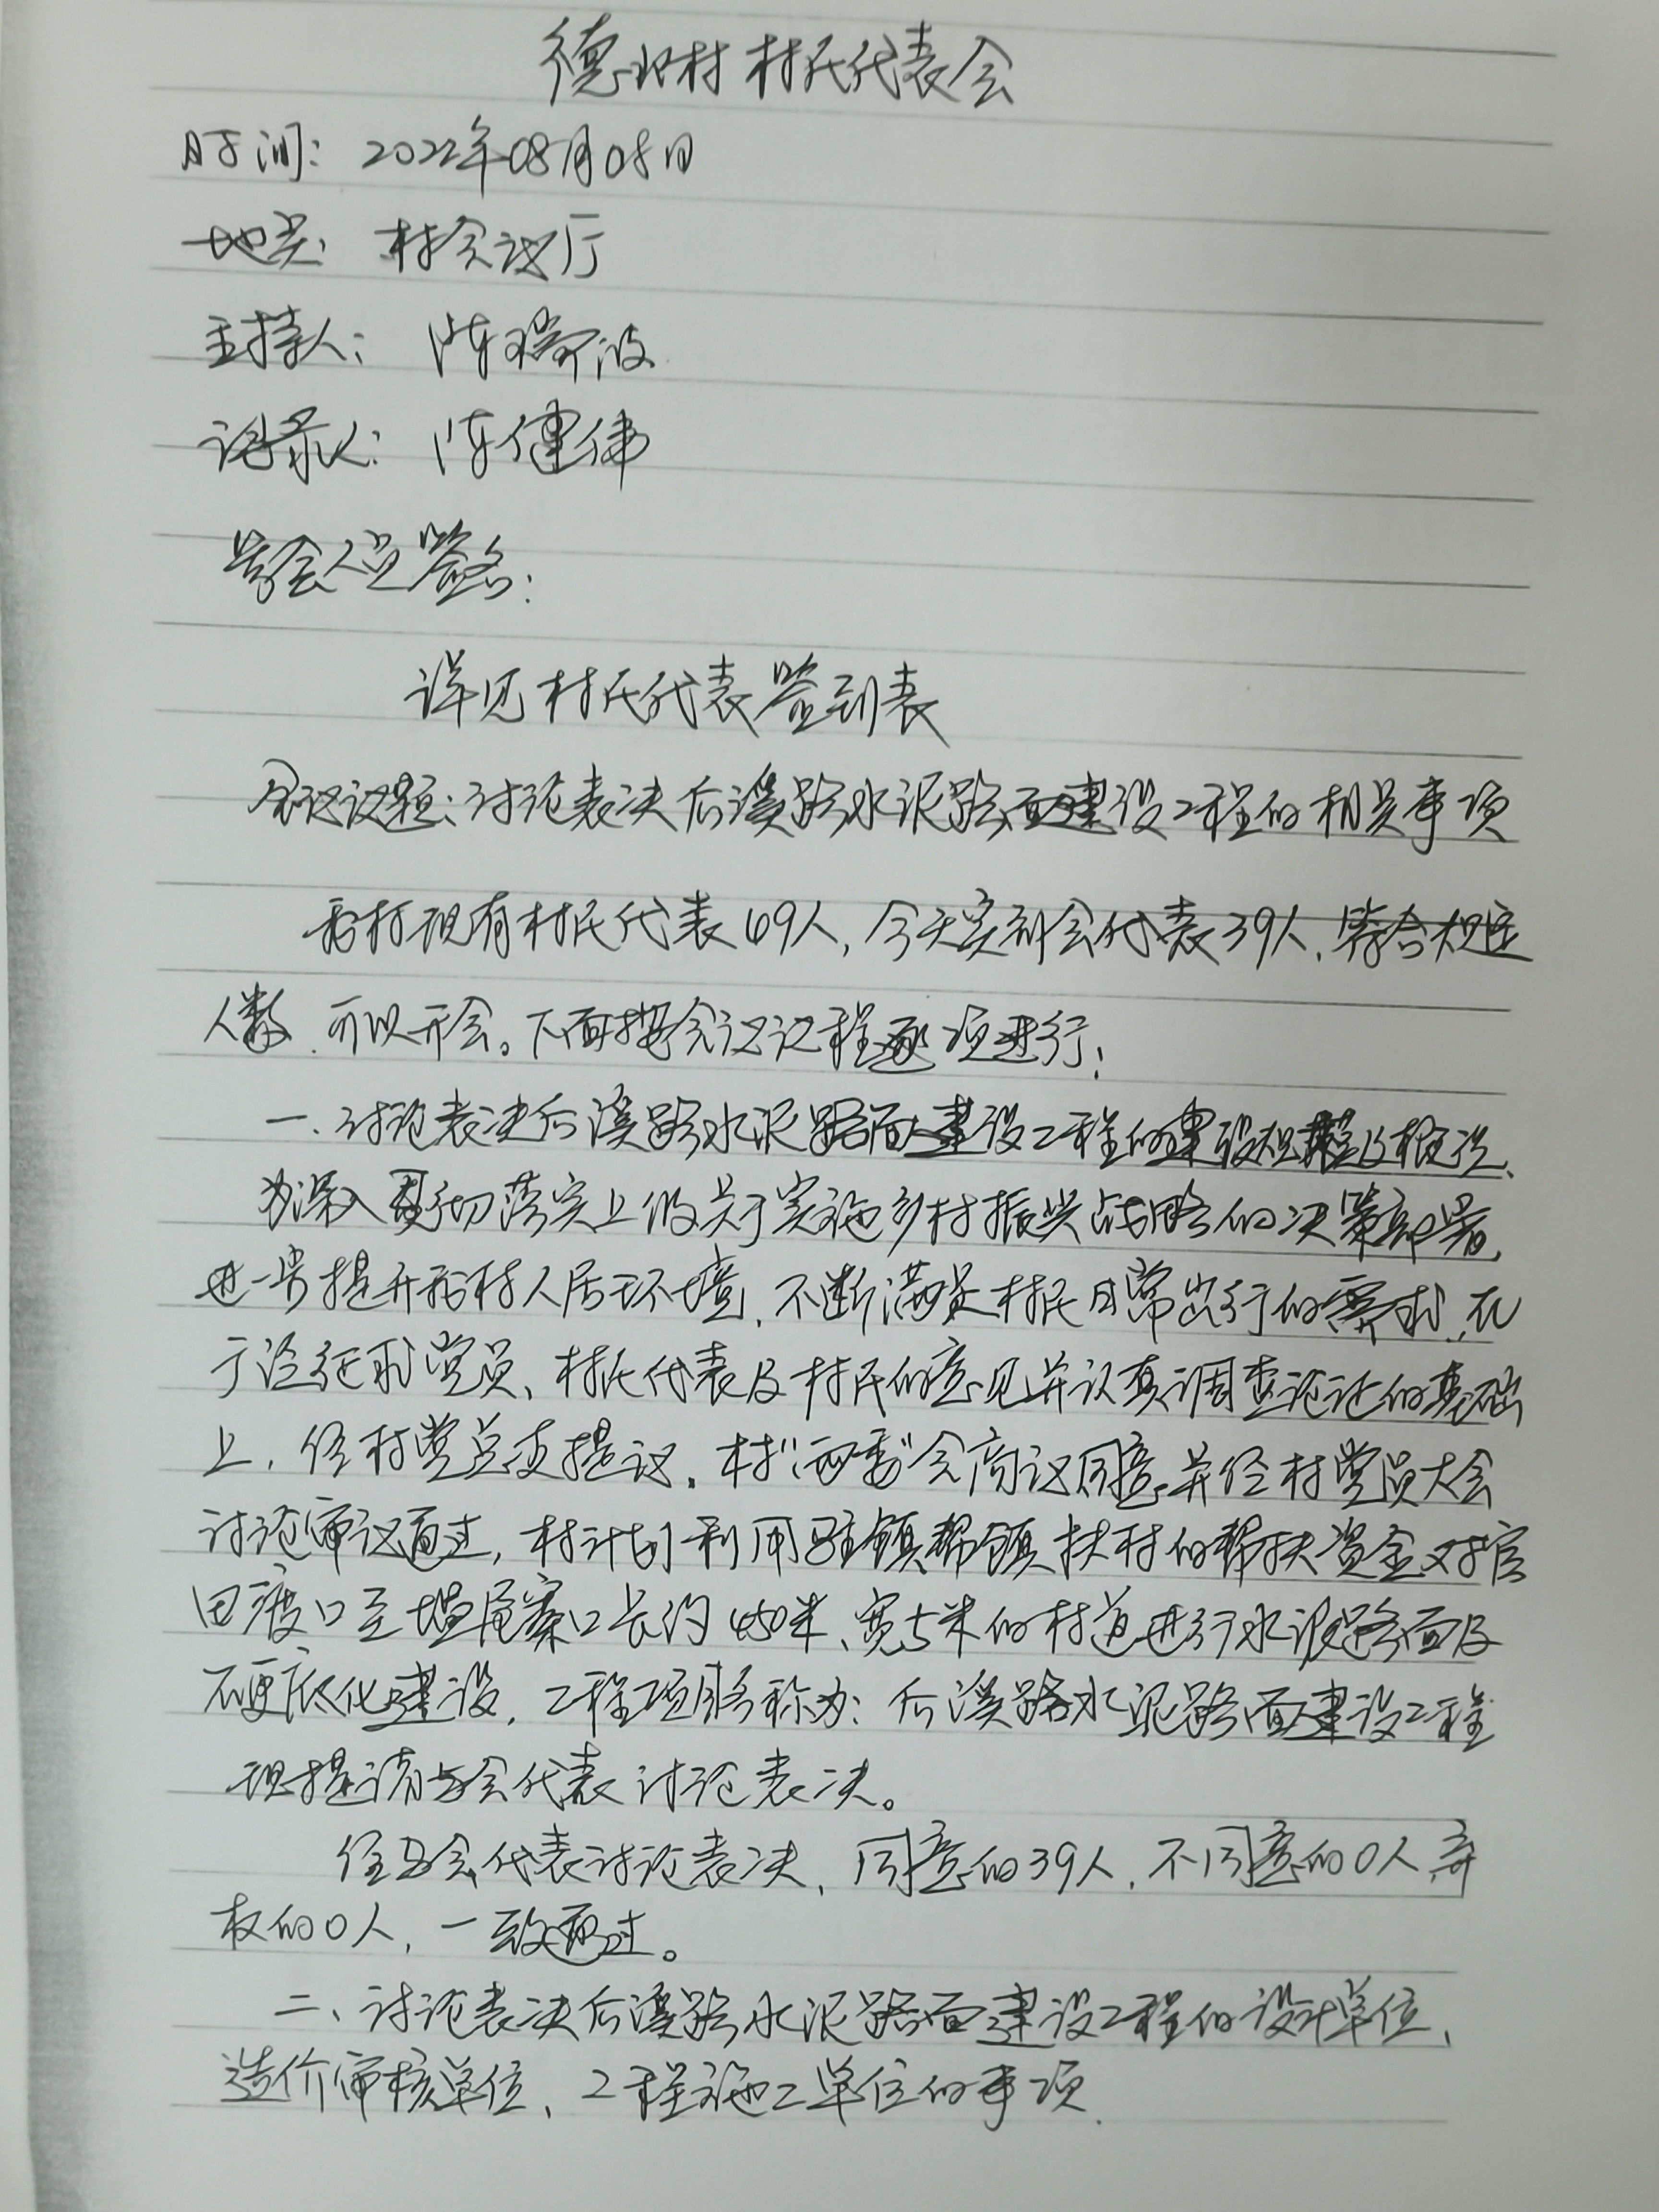 德北村村民代表会
时间：2022年08月08日
地点：村会议厅
主持人：陈瑞波
记录人：陈健伟
与会人员签名：
详见村民代表签到表
会议议题：讨论表决后溪路水泥路面建设工程的相关事项
我村现有村民代表49人，今天实到会代表39人，符合规定
人数，可以开会。下面按会议议程逐项进行：
一、讨论表决后溪路水泥路面建设工程的建设规模及概况、
为深入贯彻落实上级关于实施乡村振兴战略的决策部署，
进一步提升我村人居环境，不断满足村民日常出行的需求，在
广泛征求党员、村民代表及村民的意见并认真调查论证的基础
上，经村党总支提议，村“两委”会商议同意，并经村党员大会
讨论审议通过，村计划利用驻镇帮镇扶村的帮扶资金对官
田渡口至埔尾寨口长约450米、宽5米的村道进行水泥路面及
硬底化建设，工程项目名称为：后溪路水泥路面建设工程
现提请与会代表讨论表决。
经与会代表讨论表决，同意的39人，不同意的0人，弃
权的0人，一致通过。
二、讨论表决后溪路水泥路面建设工程的设计单位、
造价审核单位、工程施工单位的事项.